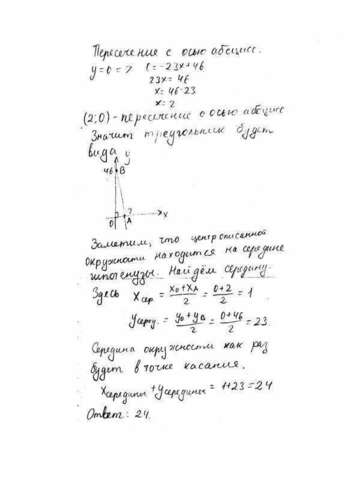 Пересечение с осью абсцисс.
y=0 => 0=-23x+46
23x=46
x=46:23
x=2
(2;0) - пересечение с осью абсцисс
Значит треугольник будет
вида
y
46 B
0 2 A x
Заметим, что центр описанной
окружности находится на середине
гипотенузы. Найдём середину.
Здесь Xсер = (x0+xA)/2 = (0+2)/2 = 1
Yсеред = (y0+yB)/2 = (0+46)/2 = 23
Середина окружности как раз
будет в точке касания.
Xсередины + Yсередины = 1+23=24
Ответ: 24.